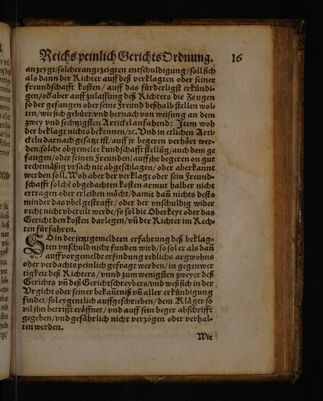 Reichs peinlich Gerichts Ordnung. 16
anzeygt/solcher angezeigten entschuldigung/soll sich
als dann der Richter auff deß verklagten oder seiner
freundschafft kosten/ auff das fürderligst erkündi-
gen/oder aber auff zulassung deß Richters die Zeugen
so der gefangen oder seine Freund deßhalb stellen wol-
ten/wie sich gebürt/und hernach von weisung an dem
zwey und sechtzigsten Artickel anfahend: Item wob
der beklagt nichts bekennen/ꝛc. Und in etlichen Arti-
ckeln darnach gesetzt ist/auff jr begeren verhört wer-
den/solche obgemelte kundschafft stellūg/auch dem ge-
fangen/oder seinen Freunden/auff jhr begeren on gut
rechtmässig ursach nit abgeschlagen/ oder aberkannt
werden soll. Wob aber der verklagt oder sein Freund-
schafft solchē obgedachten kosten armut halber nicht
ertragen oder erleiden möcht/damit dañ nichts desto
minder das übel gestrafft/oder der unschuldig wider
recht nicht übereilt werde/so sol die Oberkeyt oder das
Gericht den kosten darlegen/uñ der Richter im Rech-
ten fürfahren.
SO in der jetztgemeldten erfahrung deß beklag-
ten unschuld nicht funden wird/so sol er als dañ
auff vorgemeldt erfindung redlichs argwohns
oder verdachts peinlich gefragt werden/in gegenwer-
tigkeit deß Richters/ uñd zum wenigsten zweyer deß
Gerichts uñ deß Gerichtschreybers/und weß sich in der
Urgicht oder seiner bekantniß uñ aller erkündigung
findet/sol eygentlich auffgeschrieben/dem Kläger so
vil jhn betrifft eröffnet/und auff sein beger abschrifft
gegeben/und gefährlich nicht verzogen oder verhal-
ten werden.
Wie